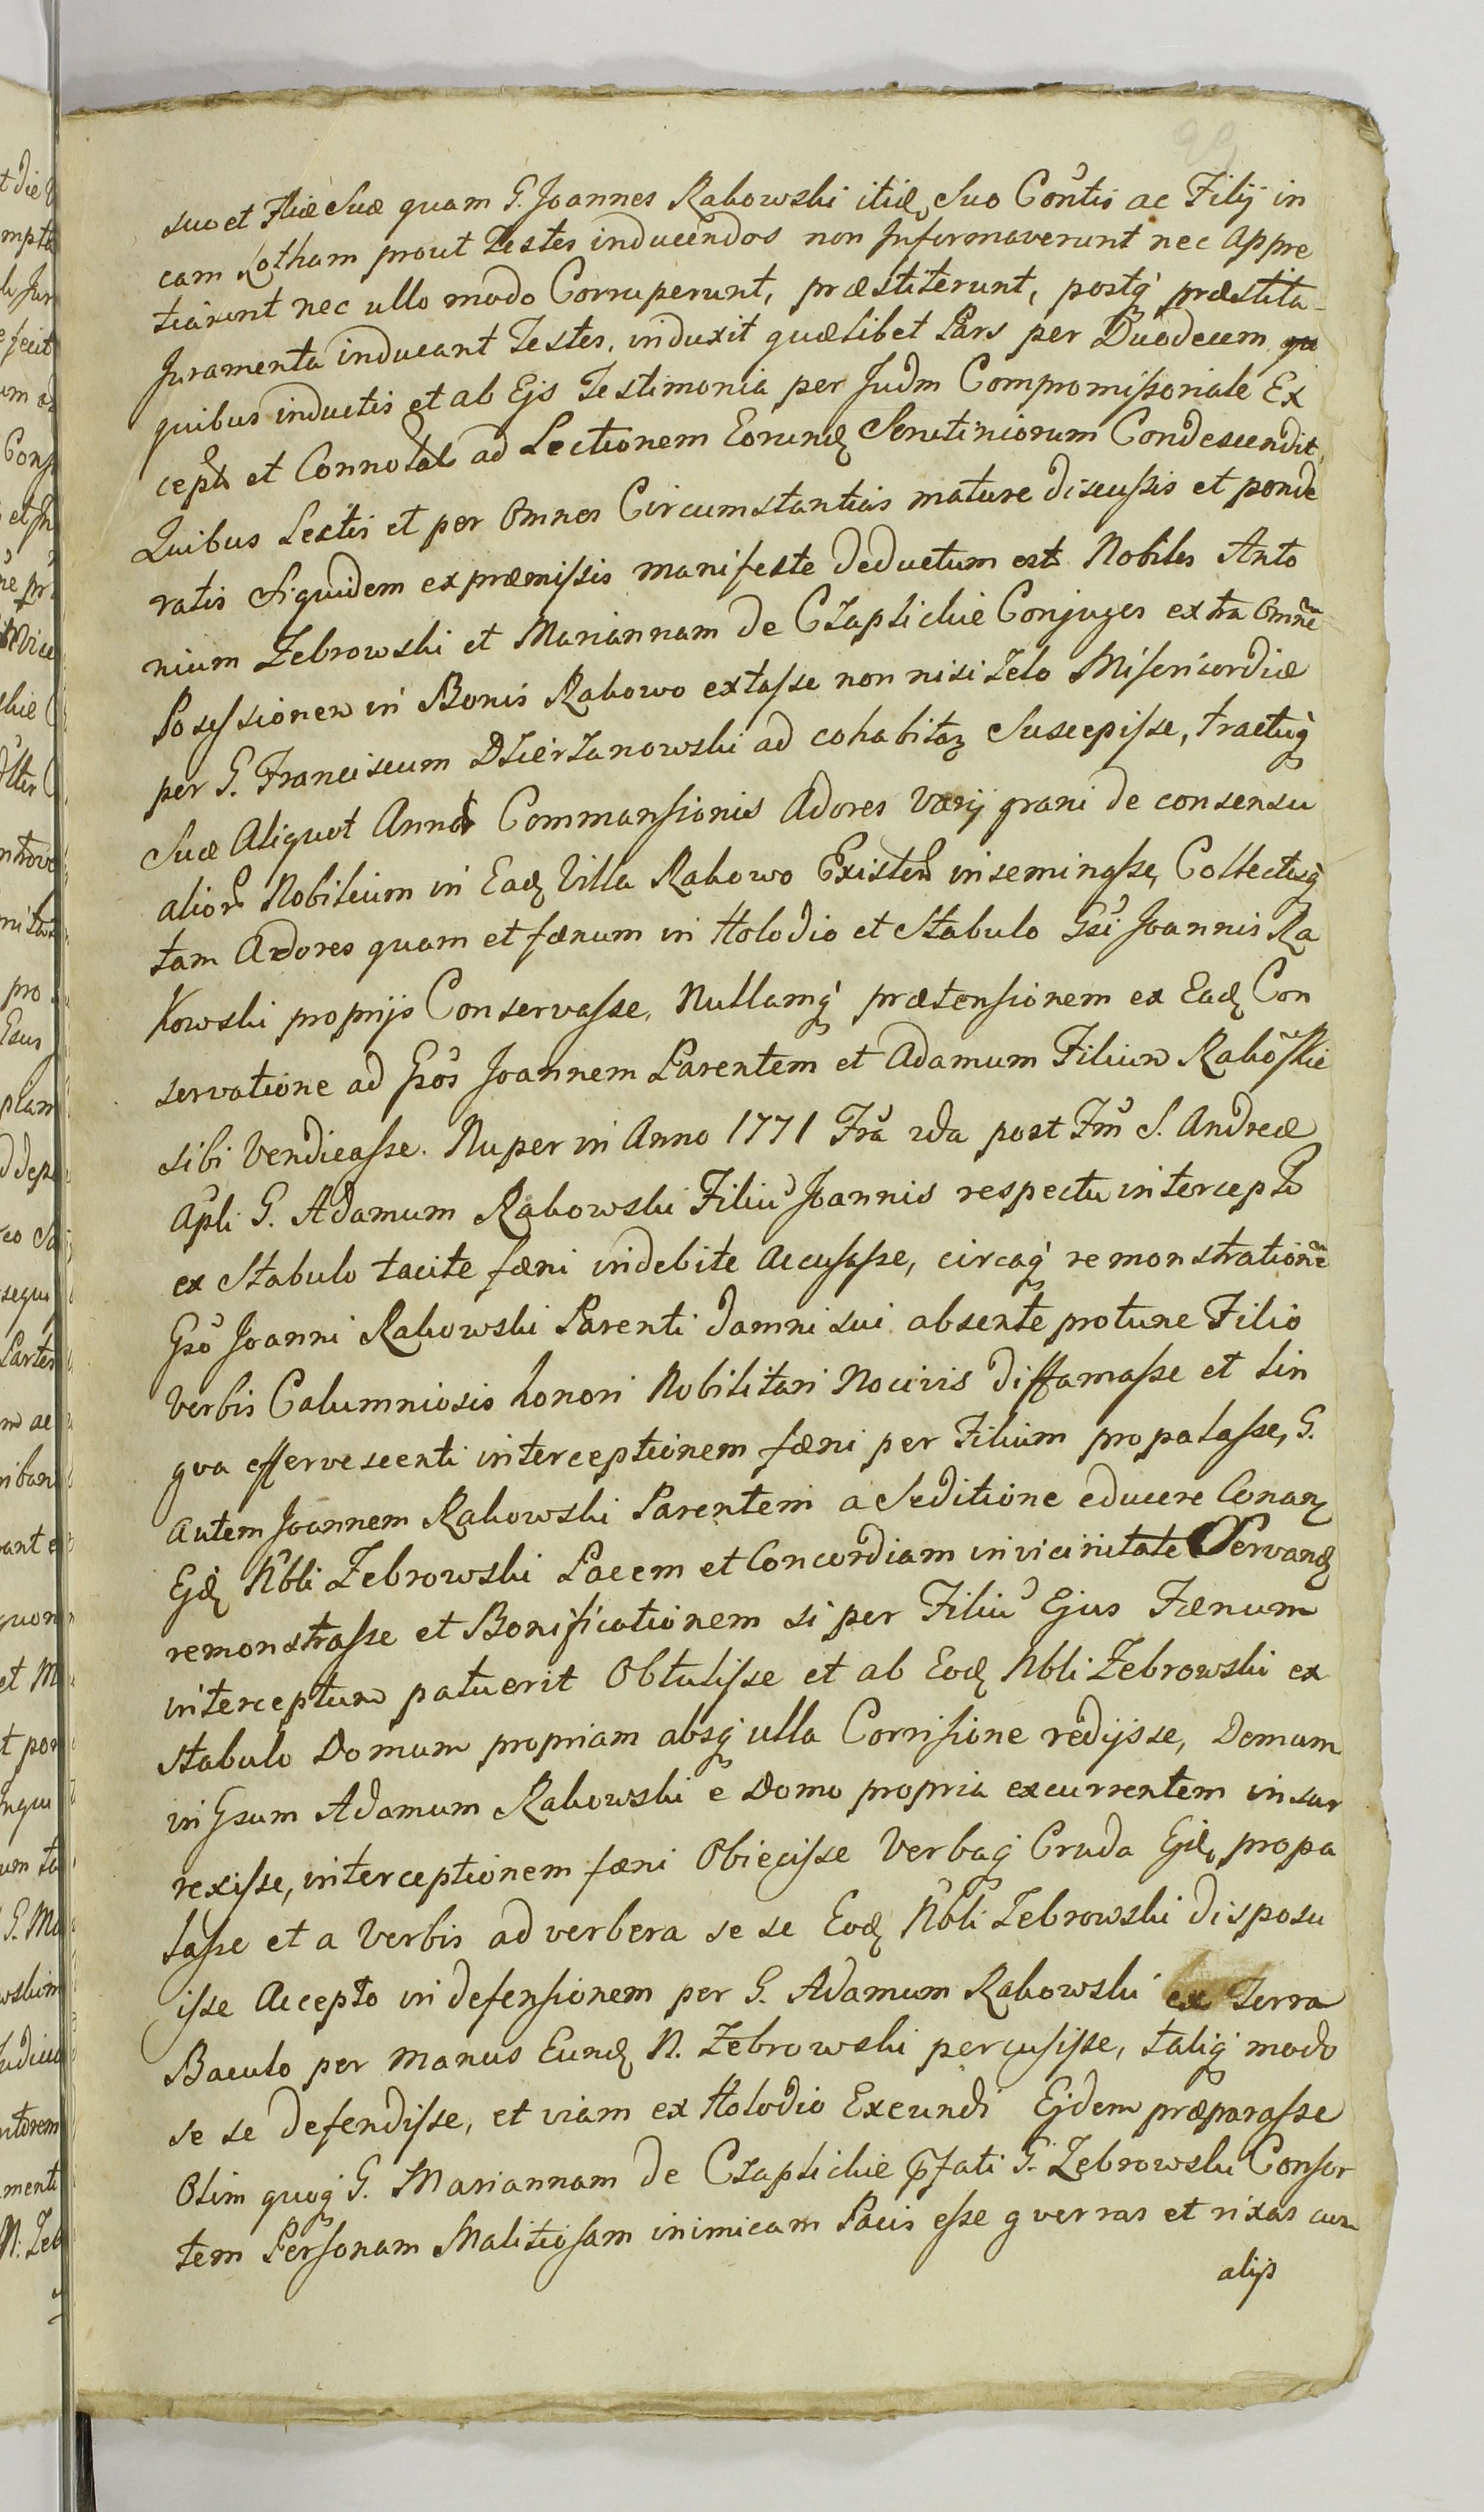 99
suo et Fliæ Suæ quam G. Joannes Rakowski itid. Suo Cońtis ac Filij in
eam Rotham prout Testes inducendos non Informaverunt nec Appre
tiarunt nec ullo modo Corruperunt, præstiterunt, postq́ præstita
Juramenta inducant Testes, induxit quælibet Pars per Duodecem
quibus inductis et ab Ejs Testimonia per Judm Compromiſsoriale Ex
cepta et Connotata ad Lectionem Eorund Scrutiniorum Condescendit,
Quibus Lectis et per Omnes Circumstantias mature discuſsis et ponde
ratis Siquidem ex præmiſsis manifeste deductum est Nobiles Anto
nium Zebrowski et Mariannam de Czaplickie Conjuges extra Omne
Posseſsionem in Bonis Rakowo extaſse non nisi Zelo Misericordiæ
per G. Franciscum Dzierzanowski ad cohabitaz Suscepiſse, tractuq́
Suæ Aliquot Annor Commansionis Adores Varij grani de consensu
alior Nobilium in Ead Villa Rakowo Existen inseminaſse, Collectusq́
tam Adores quam et fænum in Holodio et Stabulo Gsi Joannis Ra
kowski proprijs Conservaſse, Nullamq́ prætensionem ex Ead Con
servatione ad Gsos Joannem Parentem et Adamum Filium Rakoſkie
sibi Vendicaſse. Nuper in Anno 1771 Fra 2da post Fm S. Andreæ
Apli G. Adamum Rakowski Filiu Joannis respectu intercepto
ex Stabulo tacite fæni indebite Accusaſse, circaq́ remonstratione
Gso Joanni Rakowski Parenti damni sui absente protunc Filio
Verbis Calumniosis honori Nobilitari Nocivis diffamaſse et lin
gva effervescenti interceptionem fæni per Filium propalaſse, G.
Autem Joannem Rakowski Parentem a Seditione educere Conanz
Ejd Nbli Zebrowski Pacem et Concordiam in vicinitate Servand
remonstraſse et Bonificationem si per Filiu Ejus Fænum
interceptum patuerit Obtuliſse et ab Eod Nbli Zebrowski ex
Stabulo Domum propriam absq́ ulla Corrisione redijsse, Demum
in Gsum Adamum Rakowski e Domo propria excurrentem insur
rexiſse, interceptionem fæni Obieciſse Verbaq́ Cruda Ejd. propa
laſse et a Verbis ad verbera se se Eod Nbli Zebrowski disposu
iſse Accepto in defensionem per G. Adamum Rakowski ex Terra
Baculo per Manus Eund N. Zebrowski percuſiſse, taliq́ modo
se se defendiſse, et viam ex Holodio Exeundi Ejdem præparaſse
Olim quoq́ G. Mariannam de Czaplickie pfati G. Zebrowski Consor
tem Personam Malitiosam inimicam Pacis eſse gverras et rixas cum
alijs